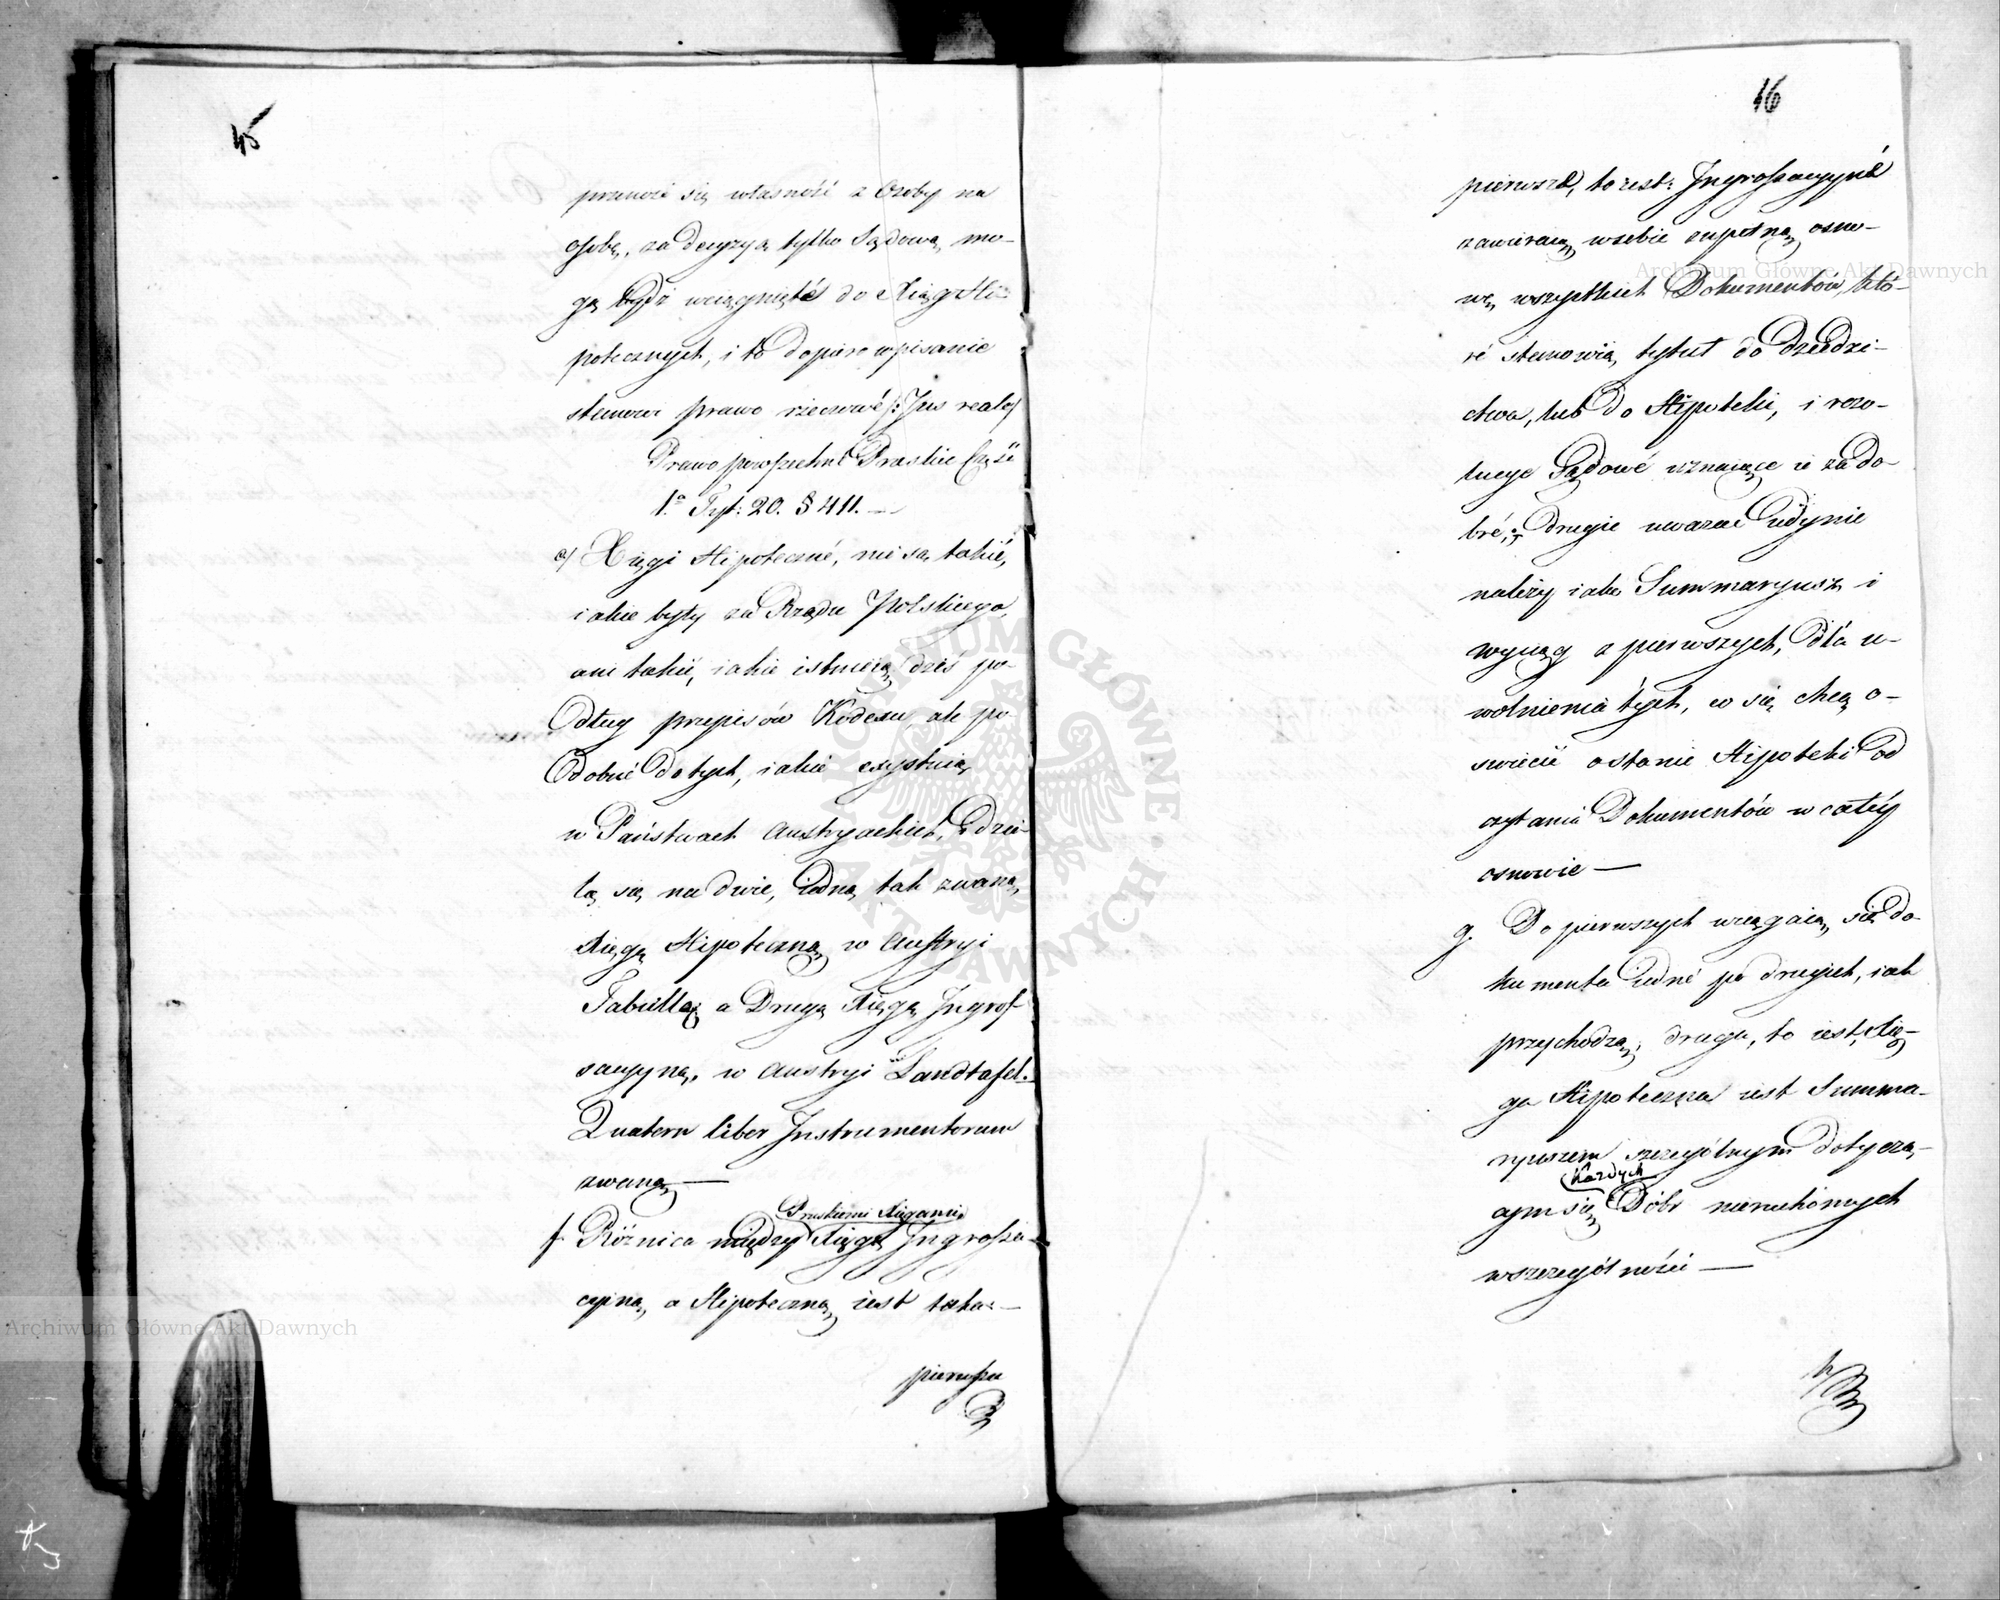 45
przenosi się własność z Osoby na
osobę, za decyzyą tylko Sądową, mo-
gą bydź wciągnięté do Xiąg Hi-
potecznych, i to dopiero wpisanie
stanowi prawo rzeczowé /: Jus reale/
Prawo powszechné Pruskie Część
1.a Tyt: 20. § 411. —
e/ Xięgi Hipoteczné, nie są takié,
iakie były za Rządu Polskiego,
ani takié, iakie istnieią dziś po-
dług przepisów Kodexu, ale po-
dobné do tych, iakié exystuią
w Państwach Austryackich, dzie-
lą się na dwie, iedną tak zwaną,
Xięgę Hipoteczną w Austryi
Tabulla, a Drugą Xięgę Ingros-
sacyyną, w Austryi Landtafel-
Quatern liber Instrumentorum
zwaną —
Pruskiemi Xięgami
f Różnica między Xięgą Ingrossa-
cyiną, a Hipoteczną iest taka: —
pierwsza
46
pierwszé, to iest: Ingrossacyyné
zawieraią w sobie zupełną osno-
wę wszystkich Dokumentów, któ-
ré stanowią tytuł do dziedzi-
ctwa, lub do Hipoteki, i rezo-
lucye Sądowé uznaiące ie za do-
bré; Drugie uważać iedynie
należy iako Summaryusz i
wyciąg z pierwszych, dla u-
wolnienia tych, co się chcą o-
świecić o stanie Hipoteki od
czytania Dokumentów w całéy
osnowie —
g. Do pierwszych wciągaią się do-
kumenta iedné po drugich, iak
przychodzą; druga, to iest, Xię-
ga Hipoteczna iest Summa-
ryuszem szczególnym dotyczą-
każdych
cym się Dóbr nieruchomych
w szczególności —
Archiwum Główne Akt Dawnych
Archiwum Główne Akt Dawnych
ARCHIWUM GŁÓWNE AKT DAWNYCH